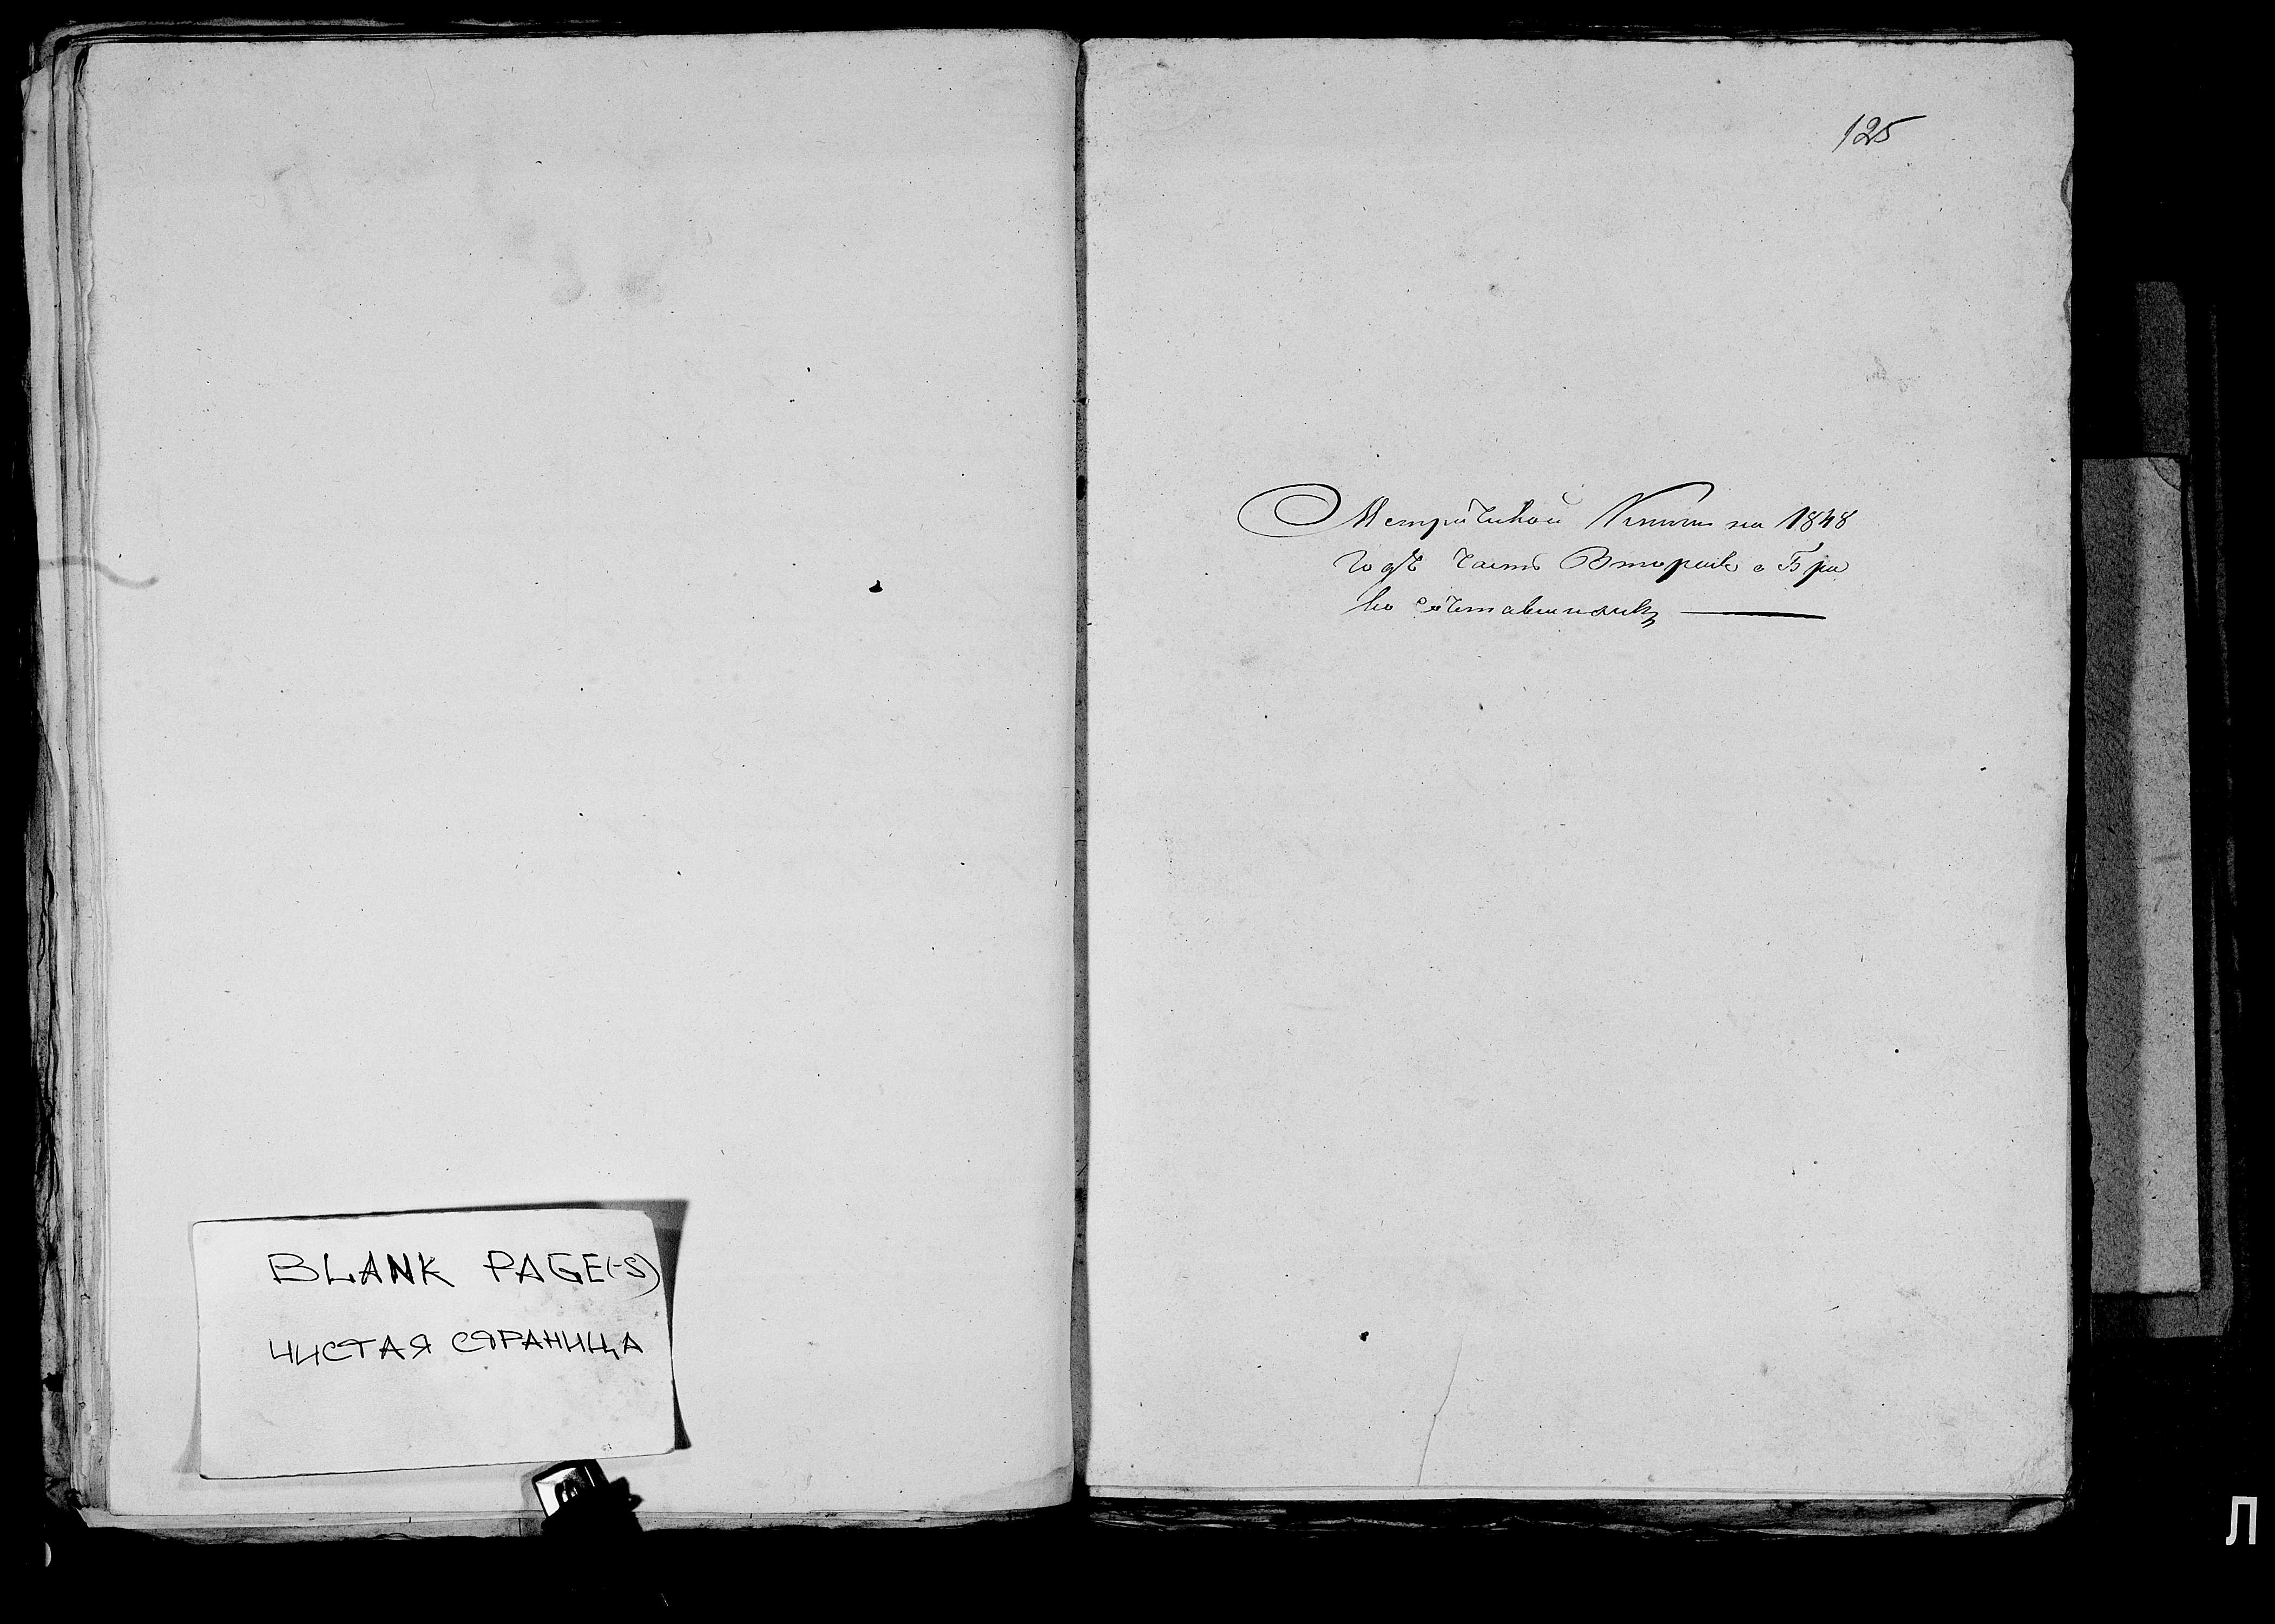 BLANK PAGE(-S)
ЧИСТАЯ СТРАНИЦА
125
Метрической Книги на 1848
годъ часть Вторая о Бра
ко сочетавшихся
Л